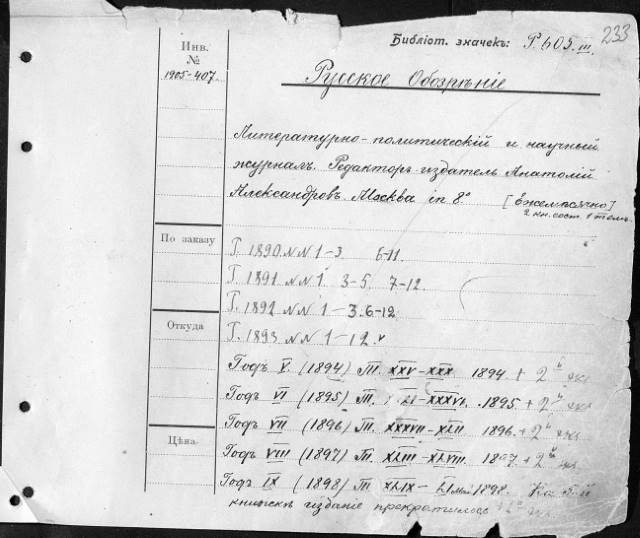 233
Библіот. значекъ: P. 605. III.
Инв.
№
1905-407.
Русское Обозрѣніе
Литературно-политическій и научный
журналъ. Редакторъ-издатель Анатолій
Александровъ. Москва in 8° [ежемѣсячно]
2 кн. сост. 1 томъ.
По заказу
Г. 1890. NN 1-3 6-11
Г. 1891 NN 1. 3-5. 7-12.
Г. 1892 NN 1-3. 6-12
Откуда
Г. 1893 NN 1-12.
Годъ V. (1894) Т. XXV-XXX 1894 + 2й экз
Годъ VI (1895) Т. XXXVI. 1895. + 2й экз
Годъ VII (1896) Т. XXXVII-XLII 1896. + 2й экз
Цѣна.
Годъ VIII (1897) Т. XLIII-XLVIII. 1897. + 2й экз
Годъ IX (1898) Т. XLIX-LI Май 1898. На 5-й
книжкѣ изданіе прекратилось